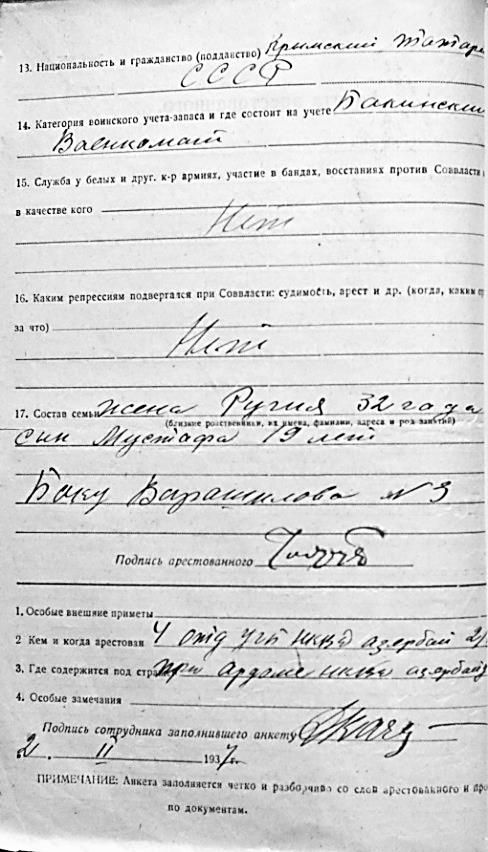 13. Национальность и гражданство (подданство) Крымский Татар
СССР
14. Категория воинского учета-запаса и где состоит на учете Бакинский
Военкомат
15. Служба у белых и друг. к-р армиях, участие в бандах, восстаниях против Соввласти
в качестве кого
Нет
16. Каким репрессиям подвергался при Соввласти: судимость, арест и др. (когда, каким
за что)
Нет
17. Состав семьи жена Ругия 32 года
(близкие родственники, их имена, фамилии, адреса и род занятий)
син Мустафа 19 лет
Баку Варашилова N 3
Подпись арестованного
1. Особые внешние приметы
2 Кем и когда арестован 4 отд угб нквд азербай 2
3. Где содержится под страж при нквд азербайд
4. Особые замечания
Подпись сотрудника заполнившего анкету
2. II 1937г.
ПРИМЕЧАНИЕ: Анкета заполняется четко и разборчиво со слов арестованного и
по документам.